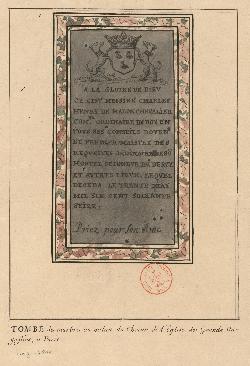 A LA GLOIRE DE DIEU
CY GIST MESSIRE CHARLES
HENRY DE MALON CHEVALIER
CON.ER ORDINAIRE DU ROY EN
TOUS SES CONSEILS DOYEN
ET PREMIER MAISTRE DES
REQUESTES ORDINAIRE DE SON
HOSTEL SEIGNEUR DE BERCY
ET AUTRES LIEUX, LEQUEL
DECEDA LE TRENTE
MIL SIX CENT SOIXANTE
SEIZE.
Priez pour son Ame.
TOMBE de marbre au milieu du Choeur de l'Eglise des Grands Au-
gustins, a Paris